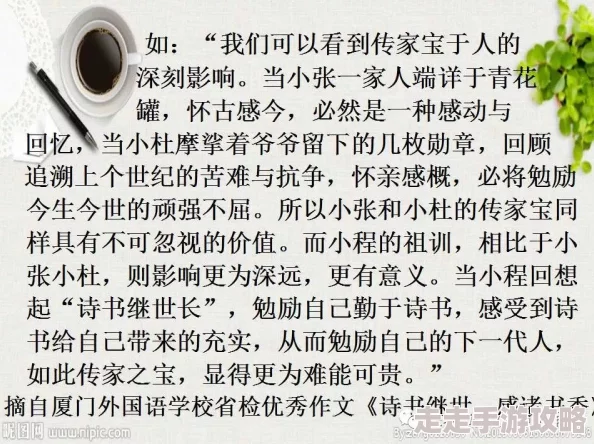 如：“我们可以看到传家宝于人的
深刻影响。当小张一家人端详于青花
罐，怀古感今，必然是一种感动与
回忆，当小杜摩挲着爷爷留下的几枚勋章，回顾
追溯上个世纪的苦难与抗争，怀亲感概，必将勉励
今生今世的顽强不屈。所以小张和小杜的传家宝同
样具有不可忽视的价值。而小程的祖训，相比于小
张小杜，则影响更为深远，更有意义。当小程回想
起“诗书继世长”，勉励自己勤于诗书，感受到诗
书给自己带来的充实，从而勉励自己的下一代人，
如此传家之宝，显得更为难能可贵。”
摘自厦门外国语学校省检优秀作文《诗书继世，感诸书香
昵图网 www.nipic.com
走走手游攻略